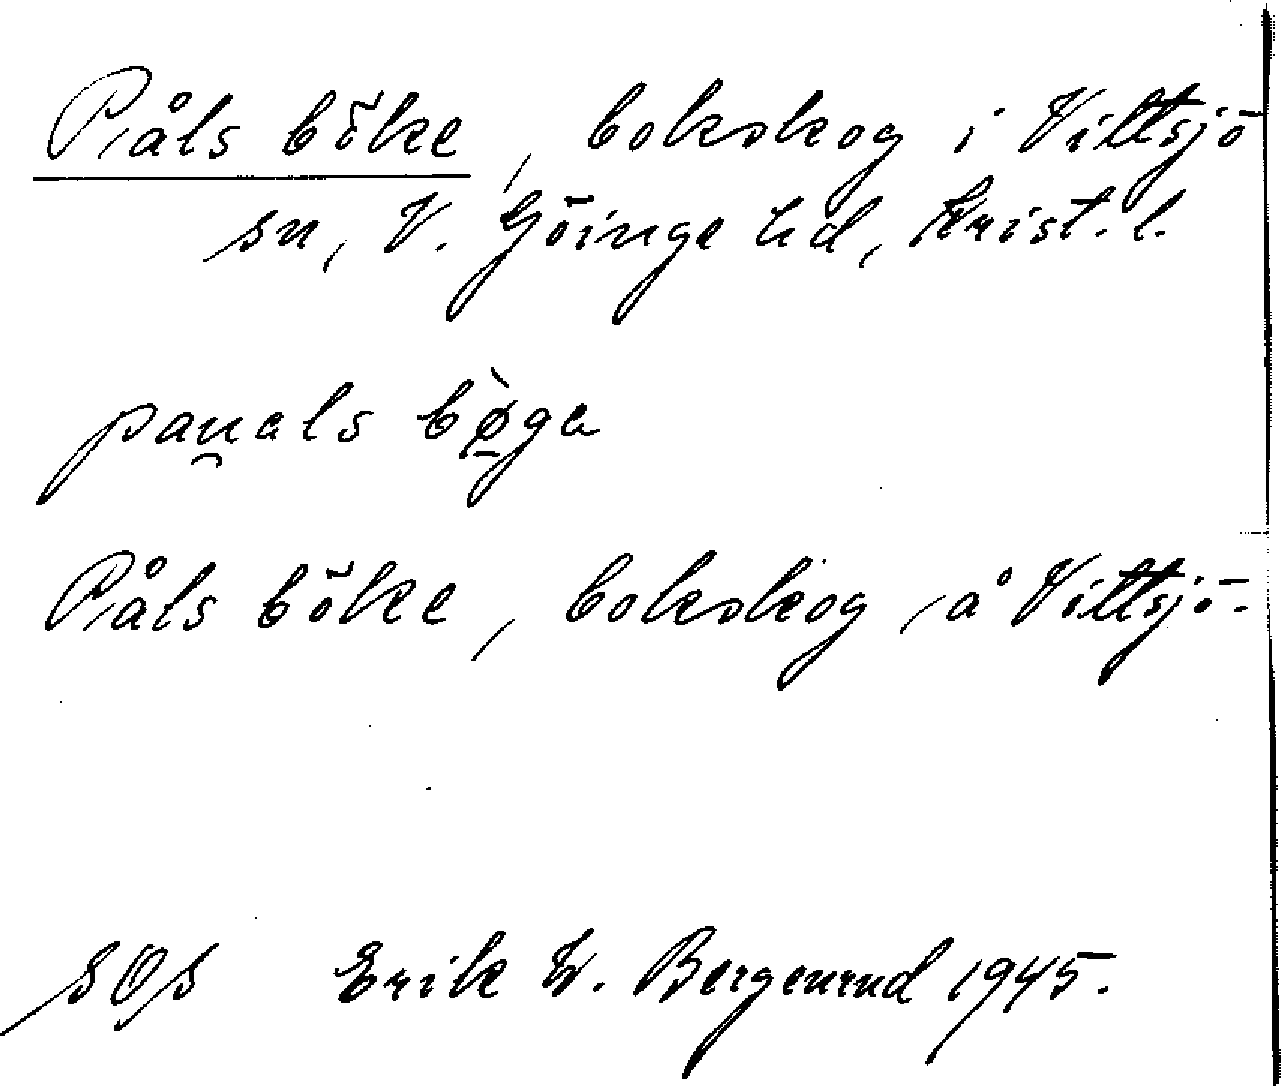 Påls böke, bokskog i Vittsjö
sn, V. Göinge hd, Krist. l.
pau̯als bø̠̀ga
Påls böke, bokskog å Vittsjö.
SOS Erik W. Bergenrud 1945.